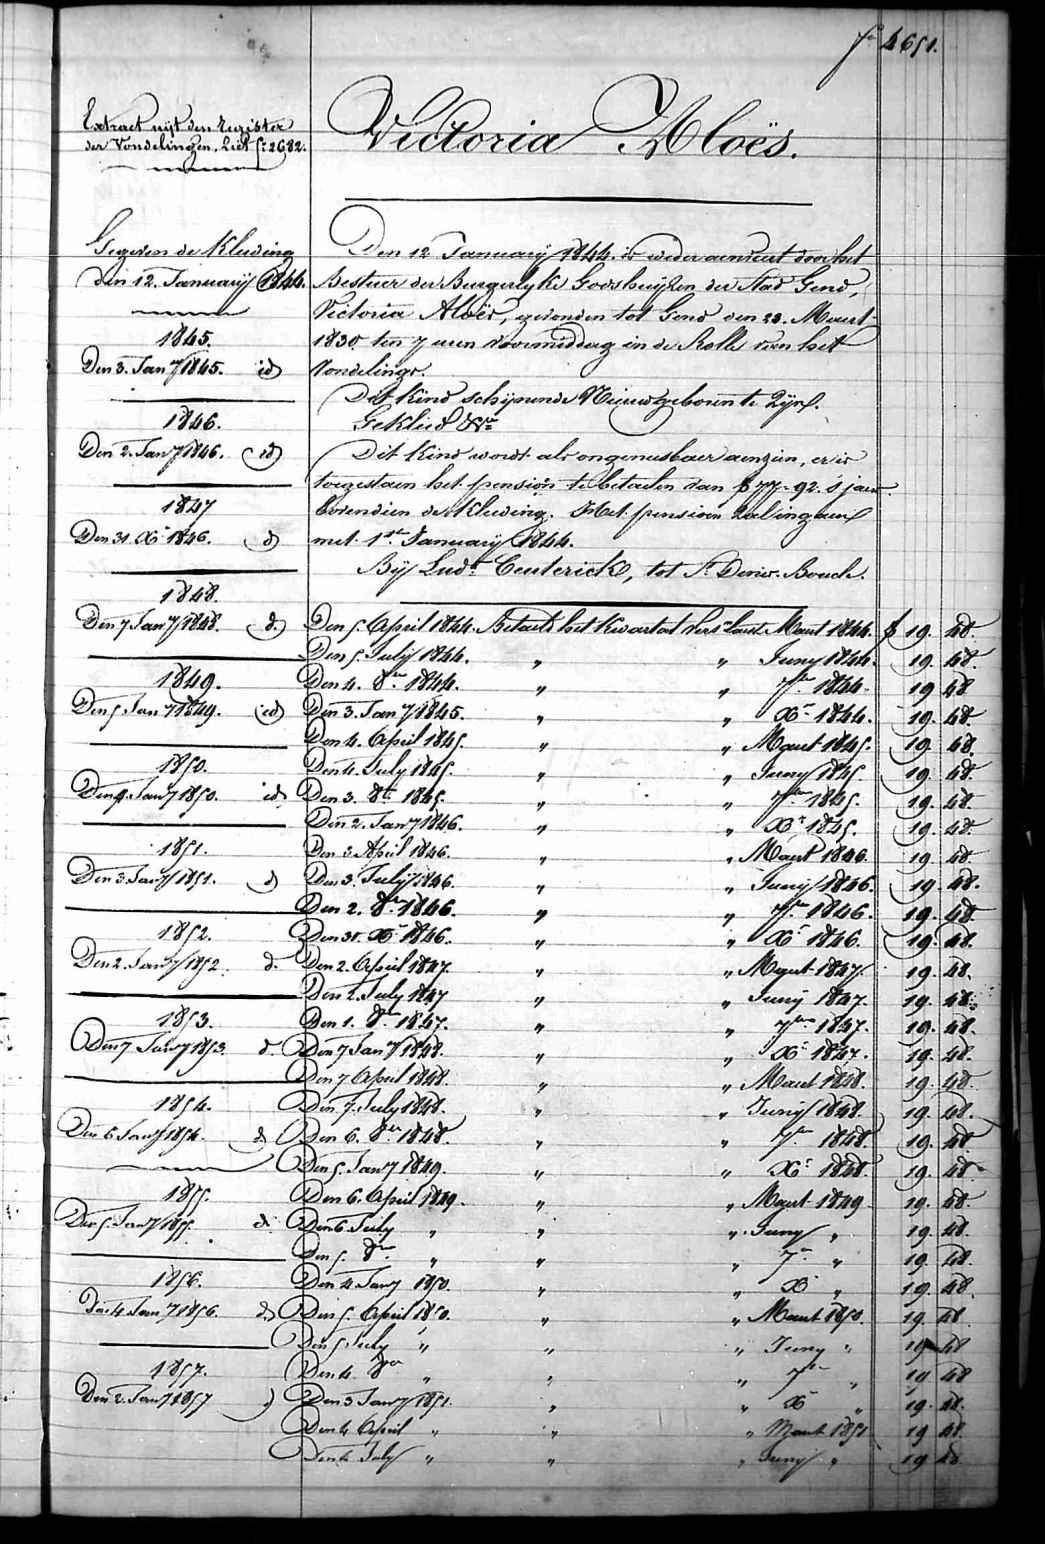 fo 4651.
Extract uijt den Register
der Vondelingen, Litt fo 2682.
Victoria Aloës.
Gegeven de Kleeding
den 12. Januarij 1844.
1845.
Den 3. Janry 1845. id
1846.
Den 2. Janry 1846. id
1847
Den 31. Xr 1846. d
1848.
Den 7 Janry 1848. d.
1849.
Den 5 Janry 1849. id
1850.
Den 4. Janry 1850. id
1851.
Den 3 Janry 1851. d
1852.
Den 2. Janry 1852. d.
1853.
Den 7 Janry 1853. d.
1854.
Den 6 Janry 1854. d
1855.
Den 5 Janry 1855. d
1856.
Den 4 Janry 1856. d
1857.
Den 2. Janry 1857 d
Den 12 Januarij 1844. is weder aenveert door het
Bestuer der Burgerlyke Godshuijzen der Stad Gend,
Victoria Aloës, gevonden tot Gend den 23. Maert
1830. ten 7 uren voormiddag in de Rolle van het
Vondelingr.
Dit Kind schijnende Nieuwgeboren te Zijn.
Gekleed &a
Dit Kind wordt als ongeneesbaer aenzien, er is
toegestaen het pensioen te betaelen van f 77-92. 's jaers
bovendien de Kleeding. Het pensioen zal ingaen
met 1ste Januarij 1844.
Bij Ludr Ceuterick, tot St Denis-Boucle.
Den 5. April 1844. Betaeld het Kwartael verst laest Maert 1844. f 19. 48.
Den 5. Julij 1844. " " Junij 1844. 19. 48.
Den 4. 8er 1844. " " 7er 1844. 19 48
Den 3. Janry 1845. " " Xr 1844. 19. 48.
Den 4. April 1845. " " Maert 1845. 19. 48.
Den 4. July 1845. " " Juny 1845 19. 48.
Den 3. 8er 1845. " " 7er 1845. 19. 48.
Den 2. Janry 1846. " " Xr 1845. 19. 48.
Den 3 April 1846. " " Maert 1846 19. 48.
Den 3. July 1846. " " Junij 1846. 19. 48.
Den 2. 8er 1846. " " 7er 1846. 19. 48.
Den 31. Xr 1846. " " Xr 1846. 19. 48.
Den 2. April 1847. " " Maert 1847. 19. 48.
Den 2. July 1847 " " Junij 1847. 19. 48.
Den 1. 8er 1847. " " 7er 1847. 19. 48.
Den 7 Janry 1848. " " Xr 1847. 19. 48.
Den 7 April 1848. " " Maert 1848. 19. 48.
Den 7. July 1848. " " Junij 1848. 19. 48.
Den 6. 8er 1848. " " 7er 1848. 19. 48
Den 5. Janry 1849. " " Xr 1848. 19. 48
Den 6. April 1849. " " Maert 1849. 19. 48.
Den 6 July " " " Juny " 19. 48.
Den 5. 8er " " " 7er " 19. 48.
Den 4 Janry 1850. " " Xr " 19. 48.
Den 5. April 1850. " " Maert 1850. 19. 48
Den 5 July " " " Juny " 19 48
Den 4. 8er " " " 7er " 19 48
Den 3 Janry 1851. " " Xr " 19. 48.
Den 4 April " " " Maert 1851 19 48.
Den 4 July " " " Juny " 19 48